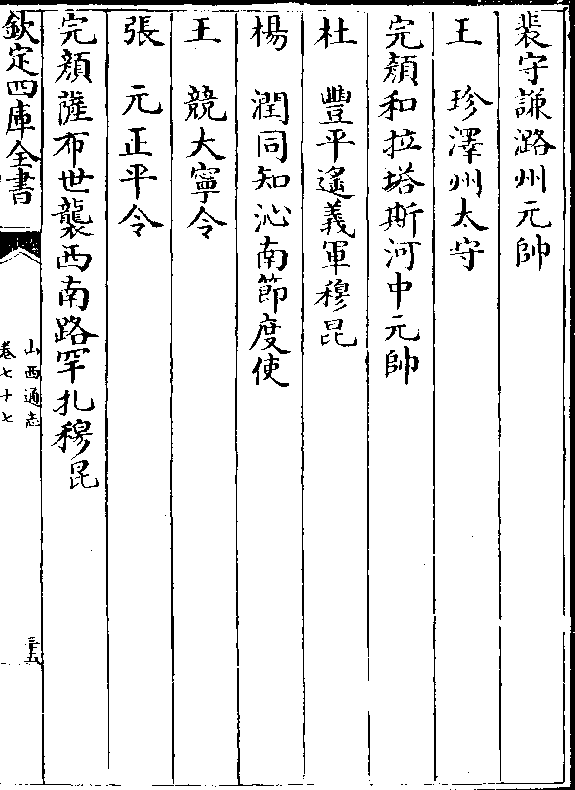 裴守謙潞州元帥
王　珍澤州太守
完顏和拉塔斯河中元帥
杜　豐平遙義軍穆昆
楊　潤同知沁南節度使
王　競大寧令
張　元正平令
完顏薩布世襲西南路罕扎穆昆
欽定四庫全書
山西通志
卷七十七
三十五